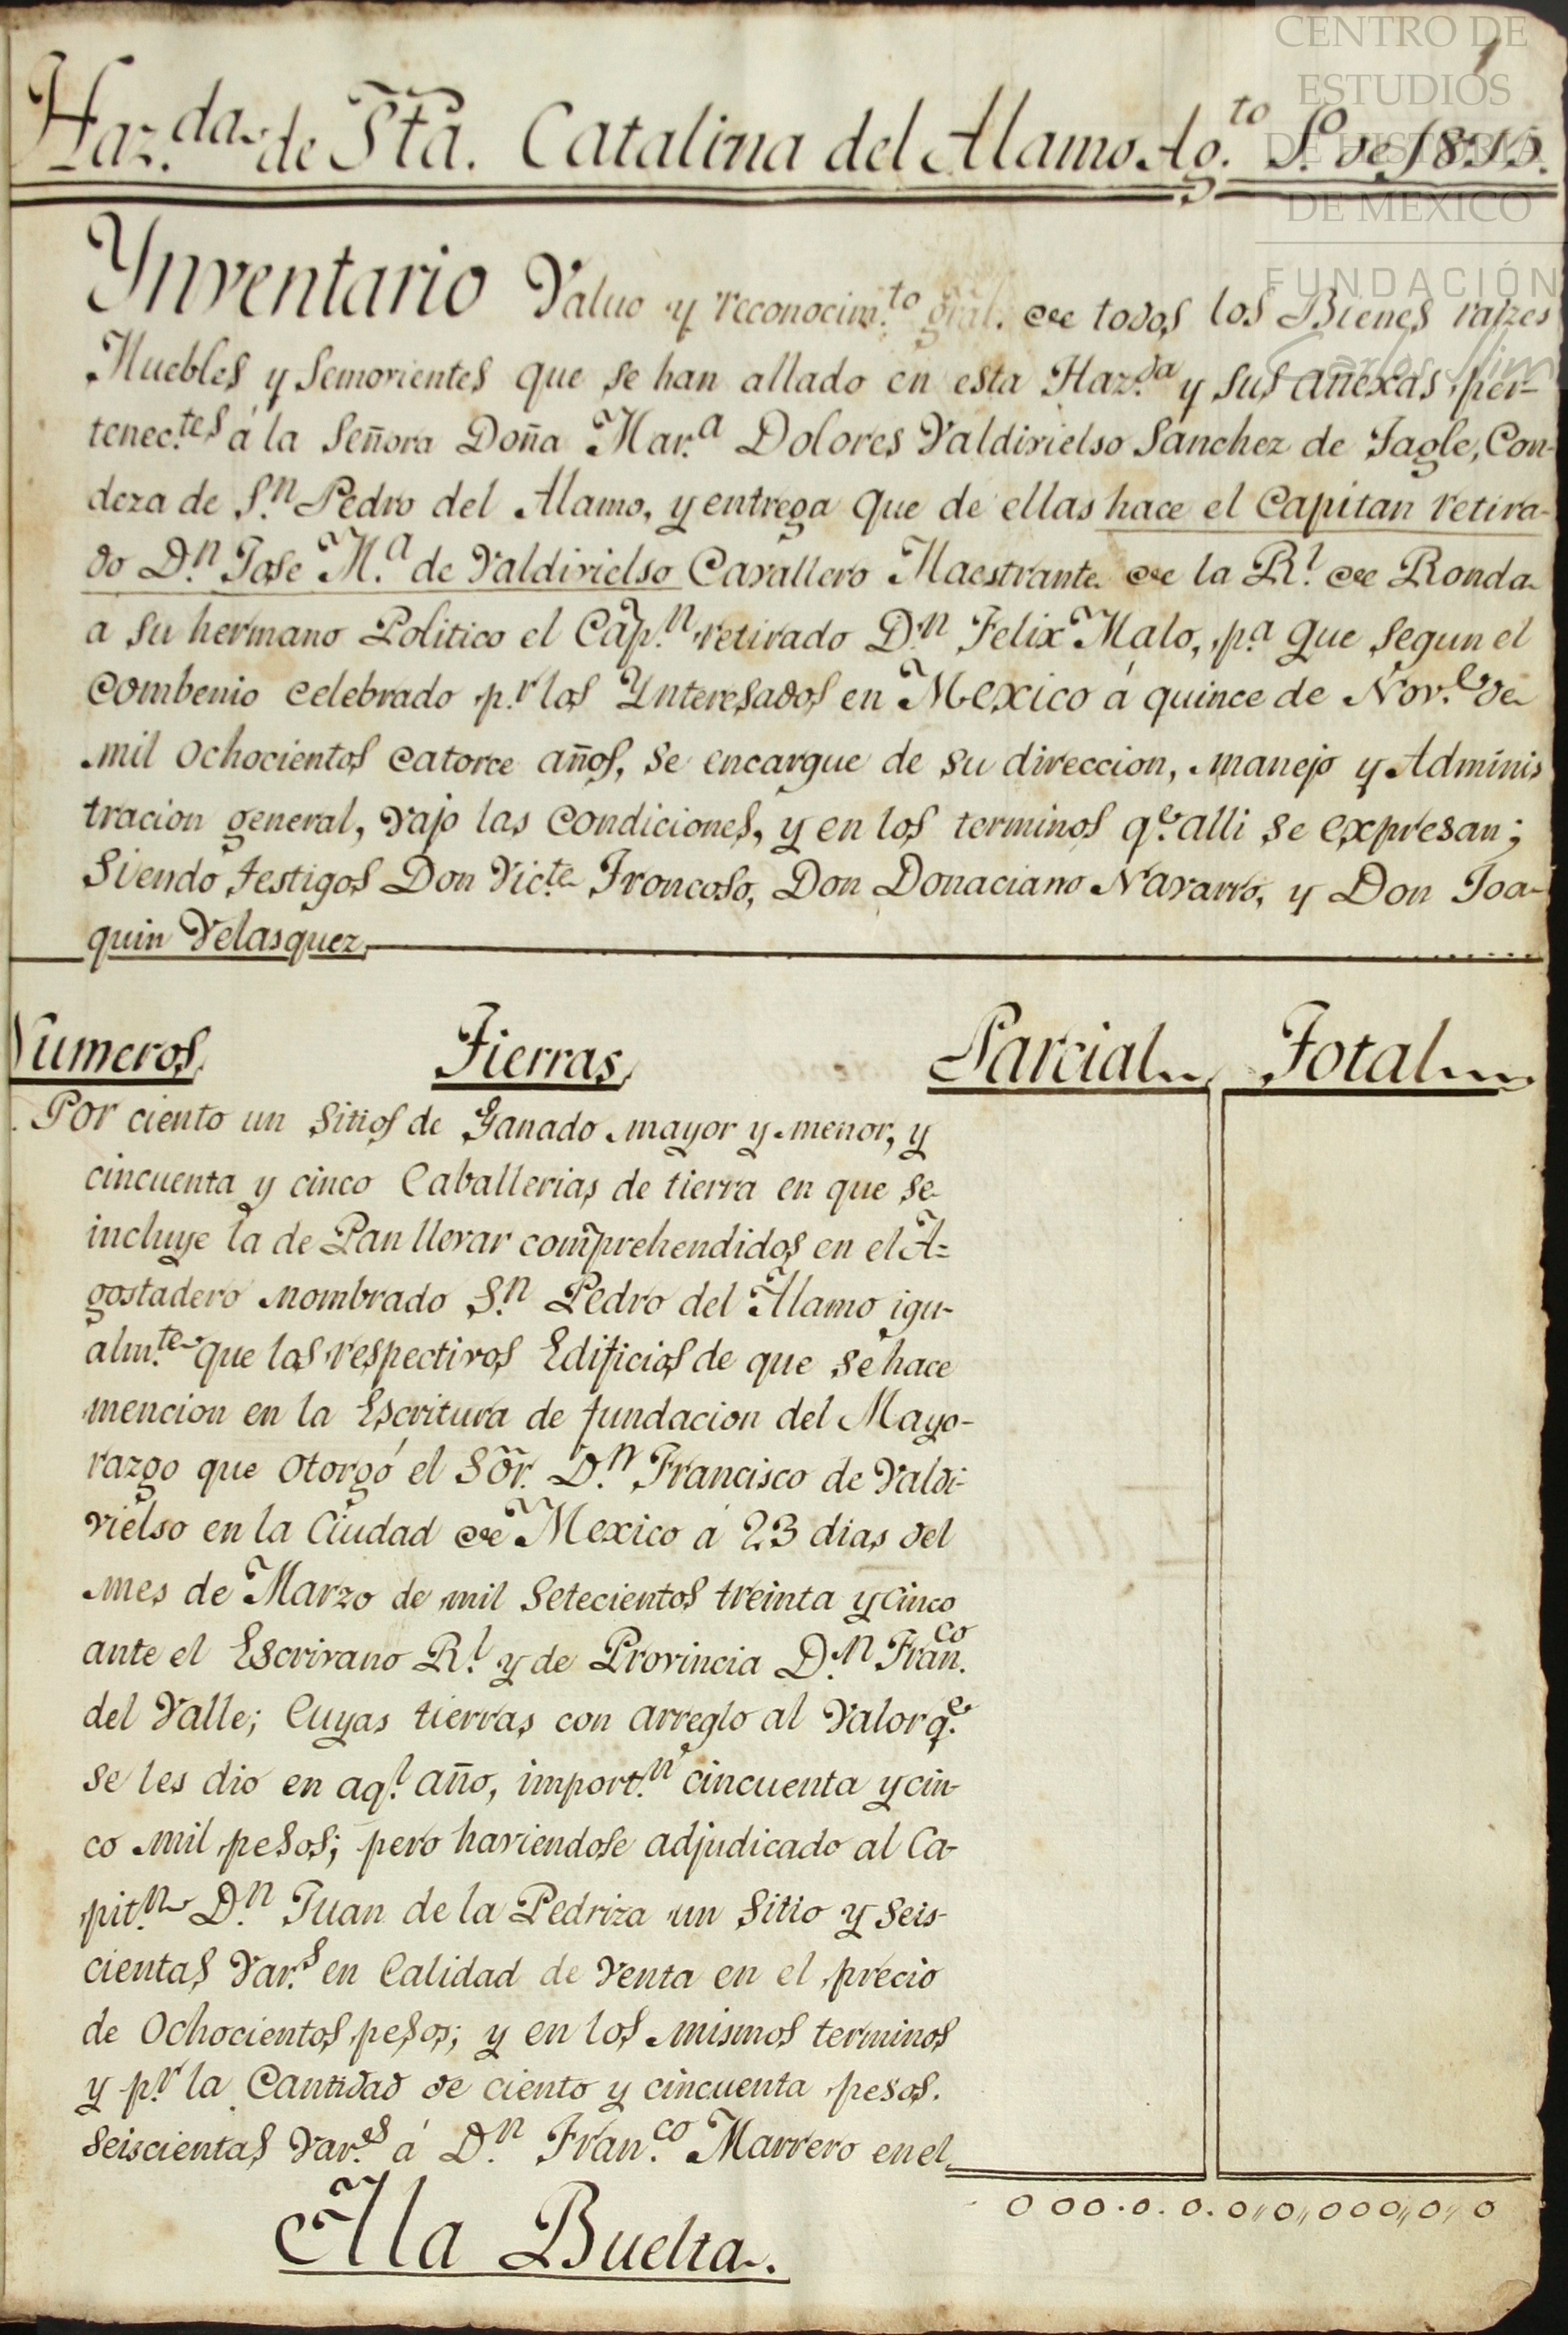 CENTRO DE
ESTUDIOS
DE HISTORIA
DE MEXICO
FUNDACIÓN
Carlos Slim
1
Haz.das de Sta. Catalina del Alamo Ag.to 1.º de 1815.
Ynventario Valuo y reconocim.to gral. de todos los Bienes raizes
Muebles y Semovientes que se han allado en esta Haz.da y sus anexas, per-
tenec.tes á la Señora Doña Mar.a Dolores Valdivielso Sanchez de Tagle, Con-
deza de S.n Pedro del Alamo, y entrega que de ellas hace el Capitan retira-
do D.n Jose M.a de Valdivielso Cavallero Maestrante de la R.l de Ronda
a su hermano Politico el Cap.n retirado D.n Felix Malo, p.a que segun el
combenio celebrado p.r los Ynteresados en Mexico á quince de Nov.e de
mil ochocientos catorce años, se encargue de su direccion, manejo y Adminis
tracion general, vajo las condiciones, y en los terminos q.e alli se expresan;
Siendo testigos Don Vic.te Troncoso, Don Donaciano Navarro, y Don Joa-
quin Velasquez
Numeros Tierras Parcial Total
. Por ciento un sitios de Ganado mayor y menor, y
cincuenta y cinco Caballerias de tierra en que se
incluye la de Pan llevar comprehendidos en el A=
gostadero nombrado S.n Pedro del Alamo igu-
alm.te que los respectivos Edificios de que se hace
mencion en la Escritura de fundacion del Mayo-
razgo que otorgó el Sor. D.n Francisco de Valdi-
vielso en la Ciudad de Mexico á 23 dias del
mes de Marzo de mil setecientos treinta y cinco
ante el Escrivano R.l y de Provincia D.n Fran.co
del Valle; Cuyas tierras con arreglo al valor q.e
se les dio en aq.l año, import.n cincuenta y cin-
co mil pesos; pero haviendose adjudicado al Ca-
pit.n D.n Juan de la Pedriza un sitio y seis-
cientas Var.s en Calidad de venta en el precio
de Ochocientos pesos; y en los mismos terminos
y p.r la Cantidad de ciento y cincuenta pesos.
seiscientas Var.es á D.n Fran.co Marrero en el
000.0.0.0,,0,,000,,0,,0
A la Buelta.